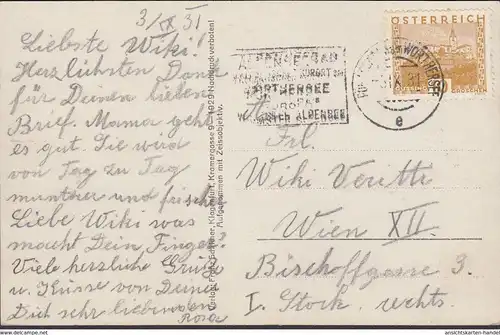 3/X 31
Liebste Wiki!
Herzlichsten Dank
für Deinen lieben
Brief. Mama geht
es gut. Sie wird
von Tag zu Tag
munterer und frischer
Liebe Wiki was
macht Dein Finger?
Viele herzliche Grüße
u. Küsse von Deiner
Dich sehr liebenden
Rosa
Klagenfurt, Kramergasse
1929 Nachdruck verboten!
Aufgenommen mit Zeissobjektiv.
ALPENSEEBAD
KURORT AM
WÖRTHERSEE
ALPENSEE
ÖSTERREICH
e
Frl.
Wiki
Wien XII.
Bischoffgasse 3.
I. Stock. rechts.
hippostcard